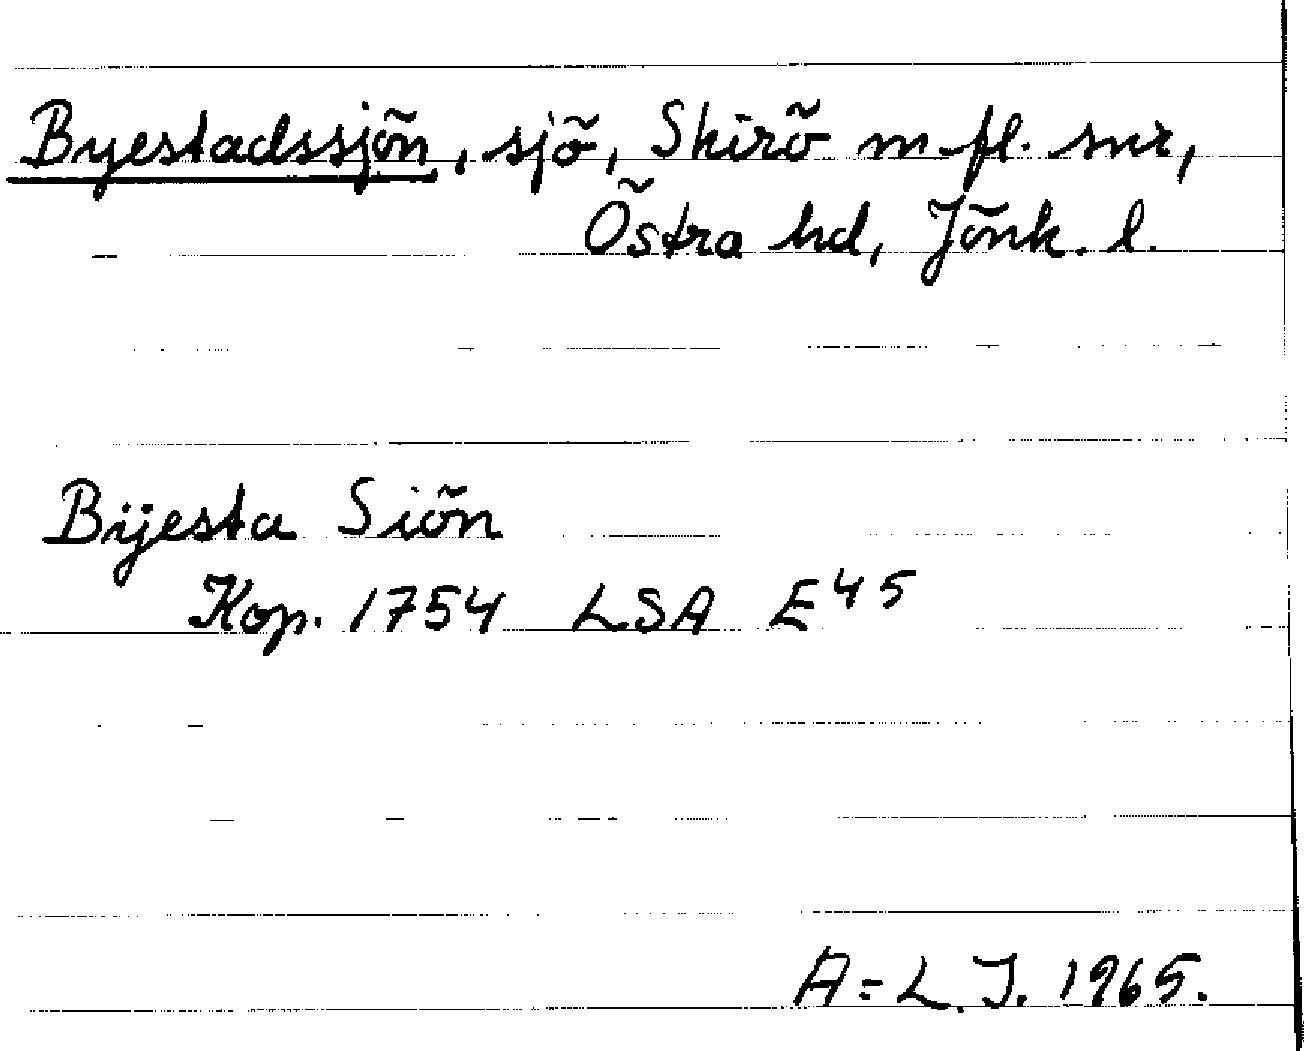 Byestadssjön, sjö, Skirö m fl. snr,
Östra hd, Jönk. l.
Bijesta Siön
Kop. 1754 LSA E45
A=L.J. 1965.